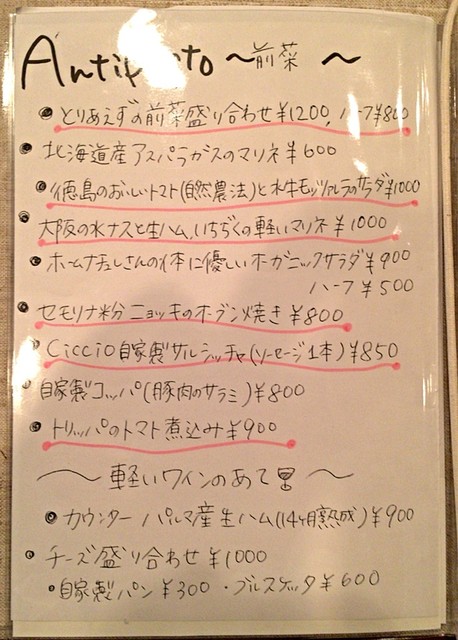 Antipasto 〜前菜 〜
• とりあえずの前菜盛り合わせ¥1200, ハーフ¥800
• 北海道産アスパラガスのマリネ¥600
• 徳島のおいしいトマト(自然農法)と水牛モッツァレラのサラダ¥1000
大阪の水ナスと生ハム、いちぢくの軽いマリネ¥1000
• ホームナチュレさんの体に優しいオーガニックサラダ¥900
ハーフ¥500
• セモリナ粉ニョッキのオーブン焼き¥800
• Ciccio自家製サルシッチャ(ソーセージ1本)¥850
自家製コッパ(豚肉のサラミ)¥800
• トリッパのトマト煮込み¥900
〜 軽いワインのあて 〜
• カウンター パルマ産生ハム(14ヶ月熟成)¥900
• チーズ盛り合わせ¥1000
• 自家製パン¥300 ・ブルスケッタ¥600